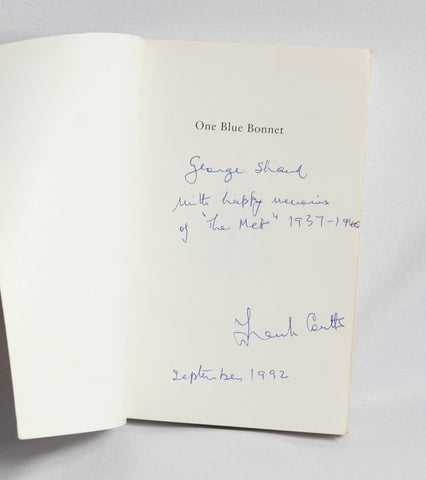 One Blue Bonnet
George Shand
With happy memories
of "The Met" 1937-1940
Frank Coutts
September 1992